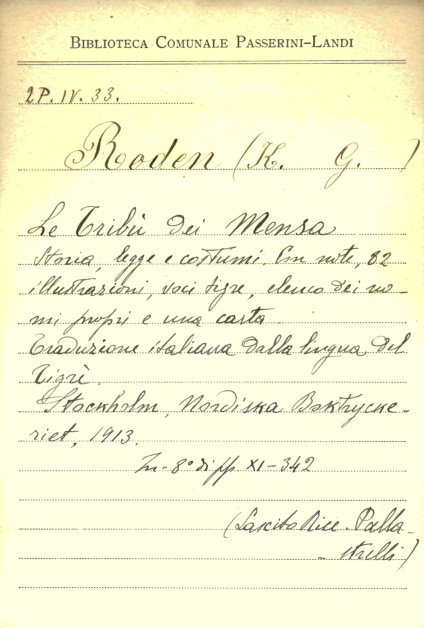 BIBLIOTECA COMUNALE PASSERINI-LANDI
2P. IV. 33.
Roden (K. G. )
Le Tribù dei Mensa
Storia, legge e costumi. Con note, 82
illustrazioni, voci tigre, elenco dei no-
mi propri e una carta
Traduzione italiana dalla lingua del
Tigrè.
Stockholm, Nordiska Boktrycke-
riet, 1913.
In-8° di pp XI-342
(Lascito Rice-Palla-
-strelli)